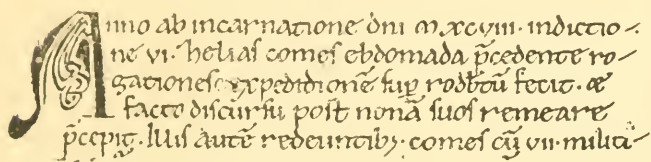 Anno ab incarnatione dñi m̃ xcviii· indictio-
ne vi· helias comes ebdomada p̃cedente ro-
gationes expeditionẽ sup̲ rodb̃tũ fecit· &
facto discursu post nonã suos remeare
p̃cepit· Illis autẽ redeuntib; comes cũ vii· militi-